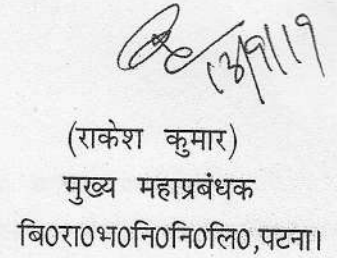 13/9/19
(राकेश कुमार)
मुख्य महाप्रबंधक
बि0रा0भ0नि0नि0लि0,पटना।